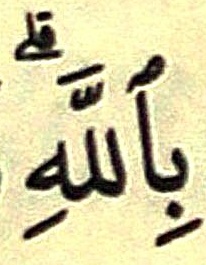 بِٱللَّهِ ۗ